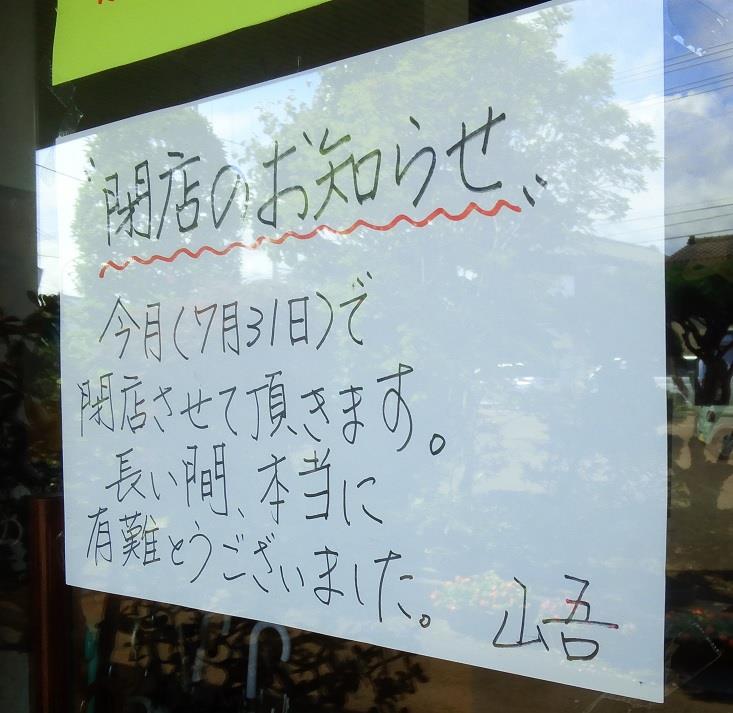 〝閉店のお知らせ〟
今月(7月31日)で
閉店させて頂きます。
長い間、本当に
有難とうございました。
山吾